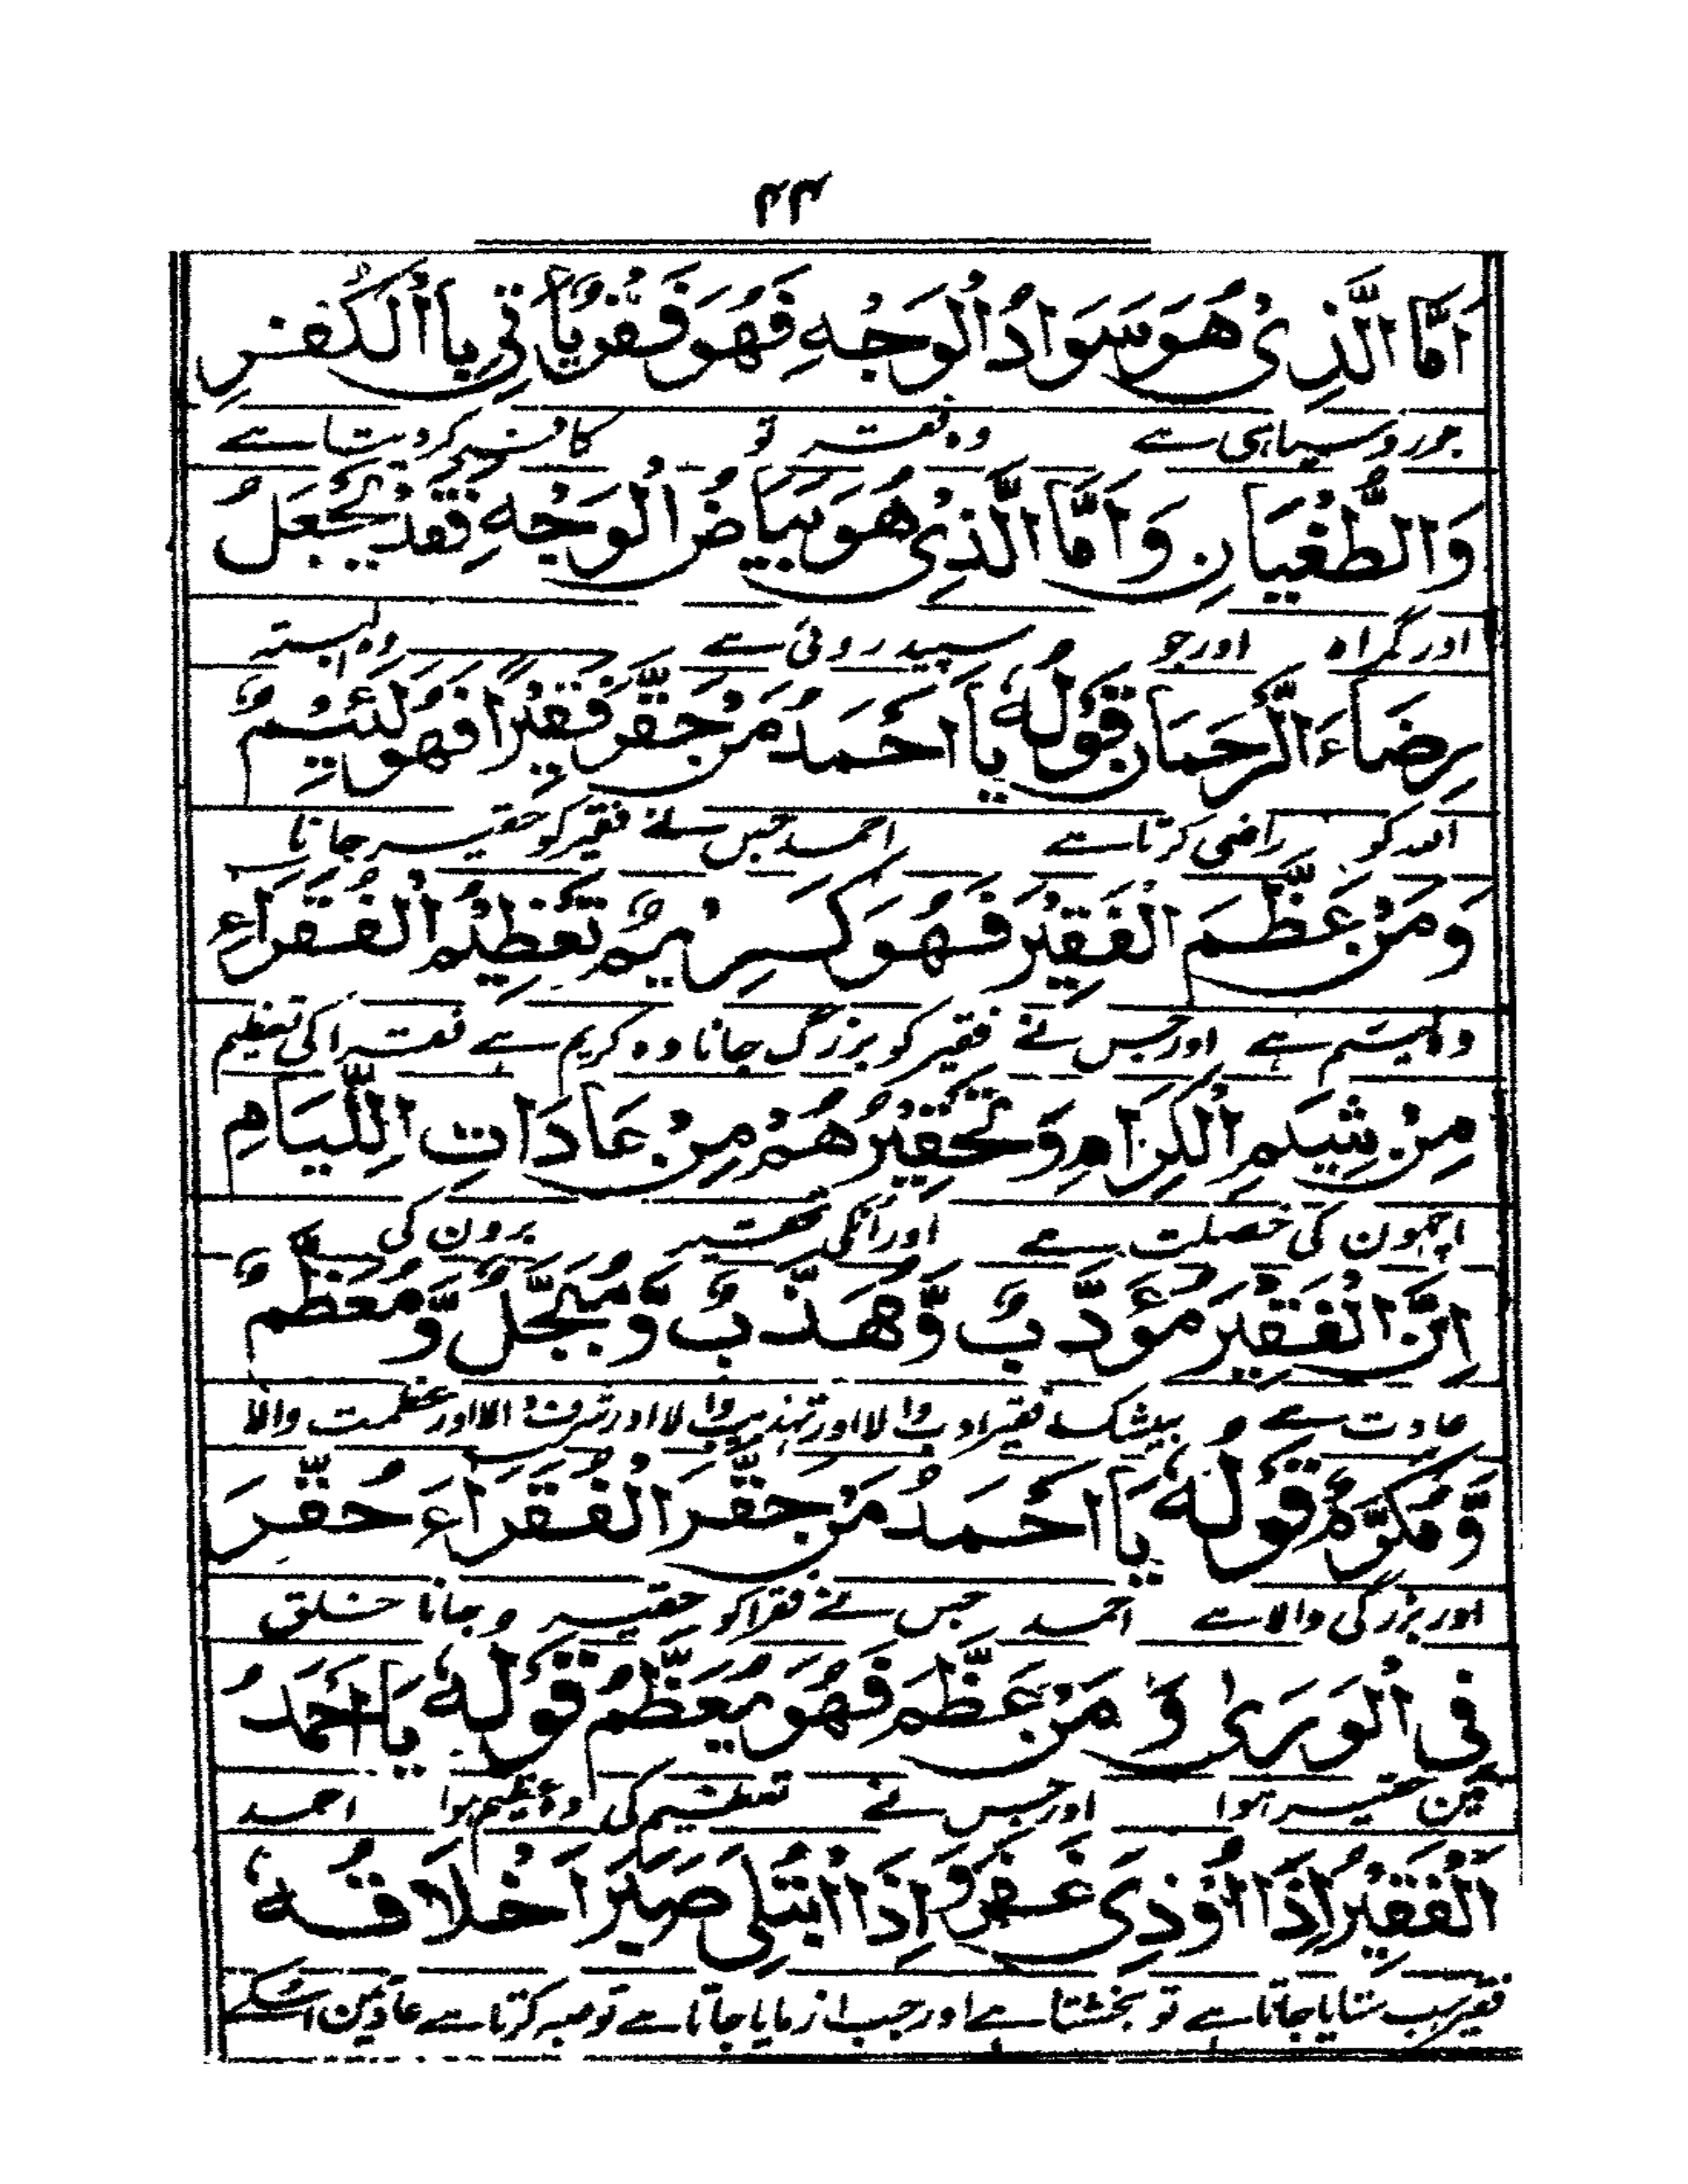 ۴۴
اَمَّا الَّذِیْ هُوَ سَوَادُ الْوَجْهِ فَهُوَ فَقْرٌ یَأْتِیْ بِاالْکُفْرِ
جو رو سیاہی سے وہ فقر تو کافر کر دیتا ہے
وَالطُّغْیَانِ وَاَمَّا الَّذِیْ هُوَ بَیَاضُ الْوَجْهِ فَقَدْ یَجْعَلُ
اور گمراہ اور جو سپید روئی سے وہ البتہ
بِرِضَاءَ الرَّحْمَانِ قَوْلُهٗ یَا اَحْمَدُ مَنْ حَقَّرَ فَقِیْرًا فَهُوَ لَئِیْمٌ
اللہ کو راضی کرتا ہے احمد جس نے فقیر کو حقیر جانا
وَمَنْ عَظَّمَ الْفَقِیْرَ فَهُوَ کَرِیْمٌ تَعْظِیْمُ الْفُقَرَاءِ
وہ لئیم ہے اور جس نے فقیر کو بزرگ جانا وہ کریم ہے فقرا کی تعظیم
مِنْ شِیَمِ الْکِرَامِ وَتَحْقِیْرُهُمْ مِنْ عَادَاتِ اللِّیَامِ
اچھون کی خصلت ہے اور انکی تحقیر برون کی
اِنَّ الْفَقِیْرَ مُؤَدَّبٌ وَّهَذَّبٌ وَّمُبَجَّلٌ وَّمُعَظَّمٌ
عادت ہے بیشک فقیر ادب والا اور تہذیب والا اور شرف والا اور عظمت والا
وَّمُکَرَّمٌ قَوْلُهٗ یَا اَحْمَدُ مَنْ حَقَّرَ الْفُقَرَاءَ حُقِّرَ
اور بزرگی والا ہے احمد جس نے فقرا کو حقیر جانا خلق
فِی الْوَرٰی وَ مَنْ عَظَّمَ فَهُوَ یُعَظَّمُ قَوْلُهٗ یَا اَحْمَدُ
مین حقیر ہوا اور جس نے تعظیم کی وہ عظیم ہوا احمد
اَلْفَقِیْرُ اِذَا اُوْذِیَ غَفَرَ وَاِذَا ابْتُلِیَ صَبَرَ اَخْلَاقُهٗ
فقیر جب ستایا جاتا ہے تو بخشتا ہے اور جب ازمایا جاتا ہے تو صبر کرتا ہے عادتین اسکے